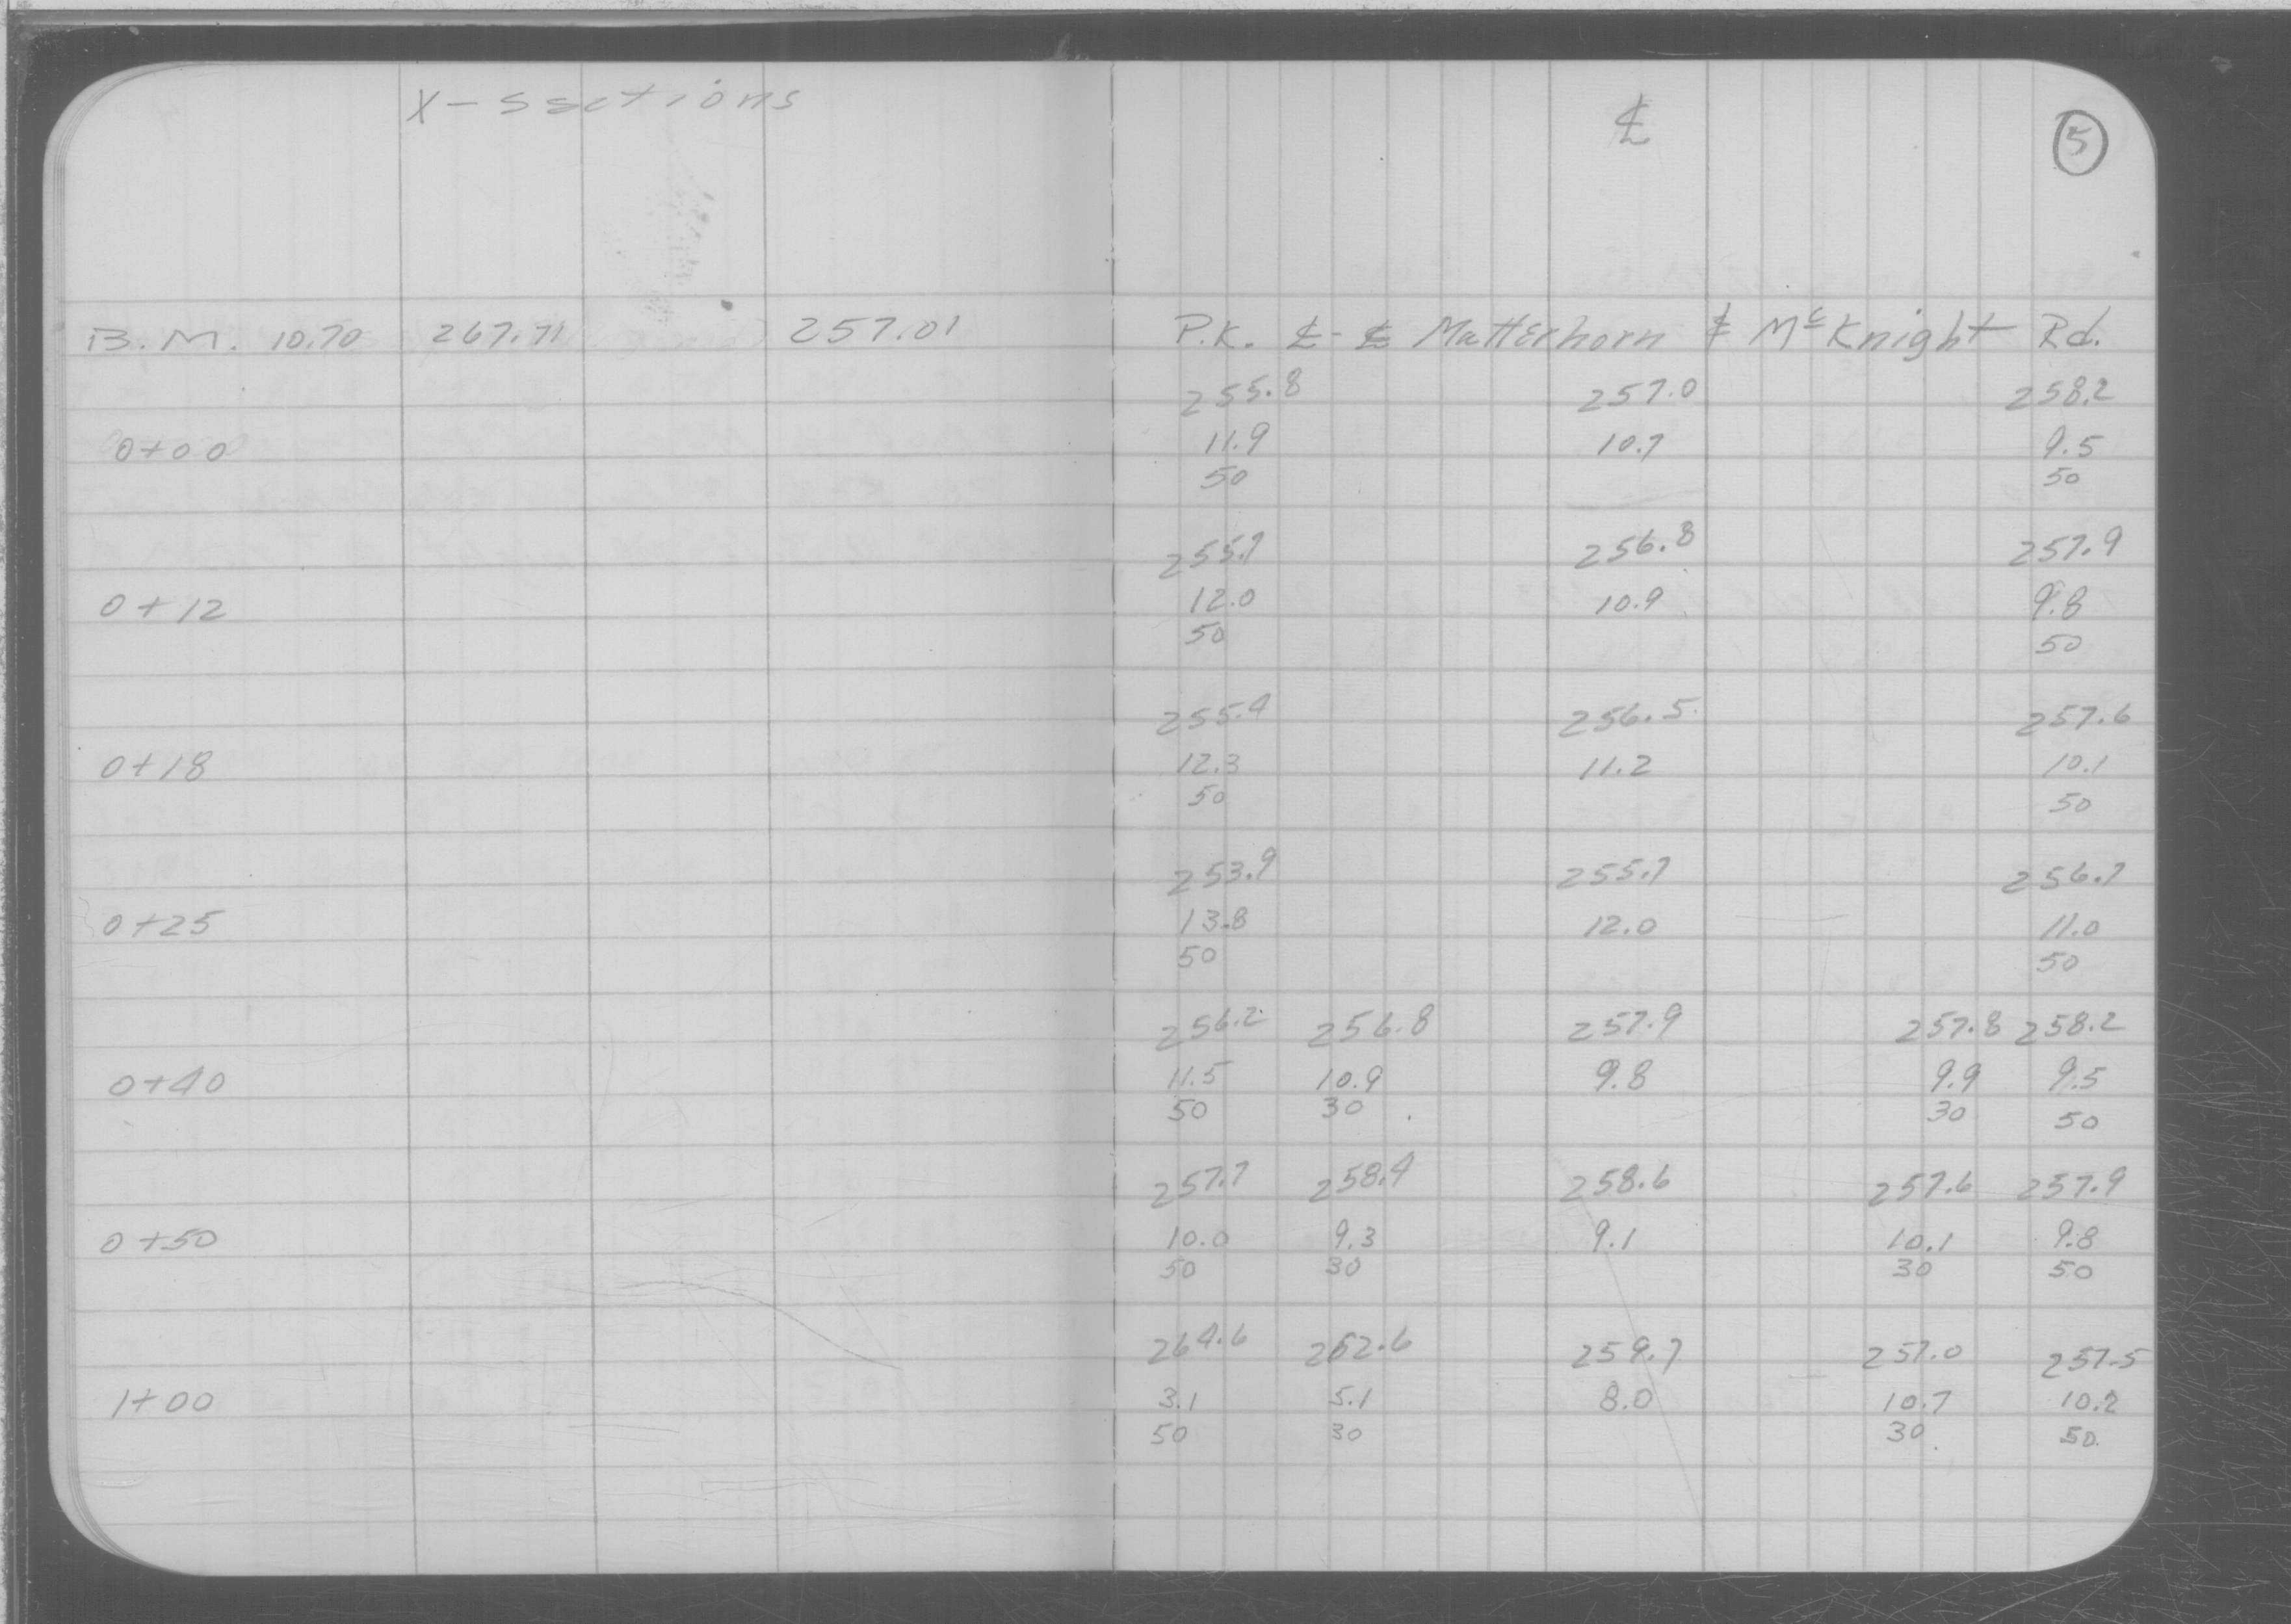 X-Ssctions
℄ 5
B.M. 10.70 267.71 257.01 P.K. ℄-℄ Matterhorn & McKnight Rd.
255.8 257.0 258.2
0+00 11.9 10.7 9.5
50 50
255.7 256.8 257.9
0+12 12.0 10.9 9.8
50 50
255.4 256.5 257.6
0+18 12.3 11.2 10.1
50 50
253.9 255.7 256.7
0+25 13.8 12.0 11.0
50 50
256.2 256.8 257.9 257.8 258.2
0+40 11.5 10.9 9.8 9.9 9.5
50 30 30 50
257.7 258.4 258.6 257.6 257.9
0+50 10.0 9.3 9.1 10.1 9.8
50 30 30 50
264.6 262.6 259.7 257.0 257.5
1+00 3.1 5.1 8.0 10.7 10.2
50 30 30 50